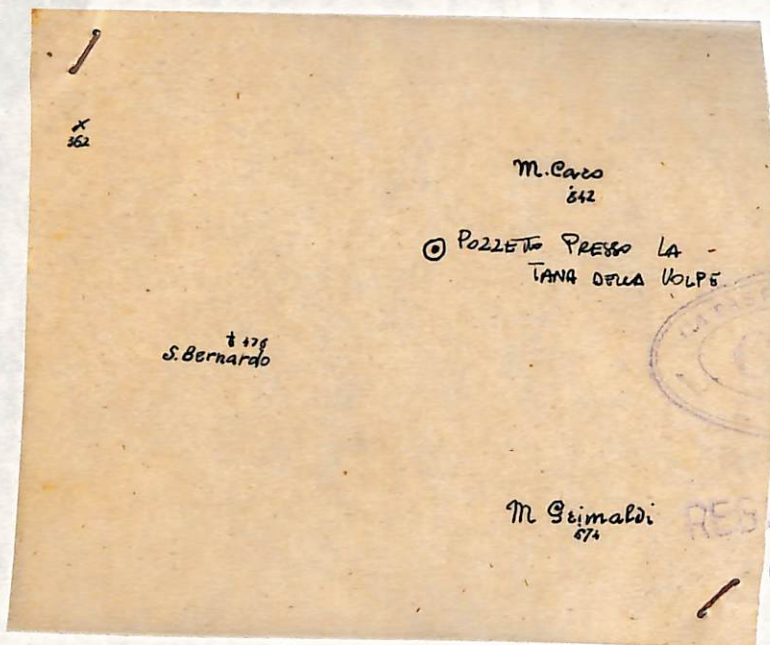 x
362
M. Caro
842
POZZETTO PRESSO LA -
TANA DELLA VOLPE
476
S. Bernardo
M Grimaldi
674
RES